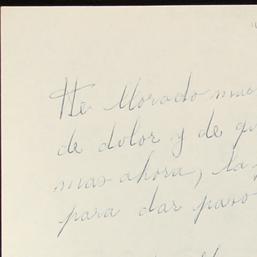 He llorado muc
de dolor y de
mas ahora, la
para dar paso